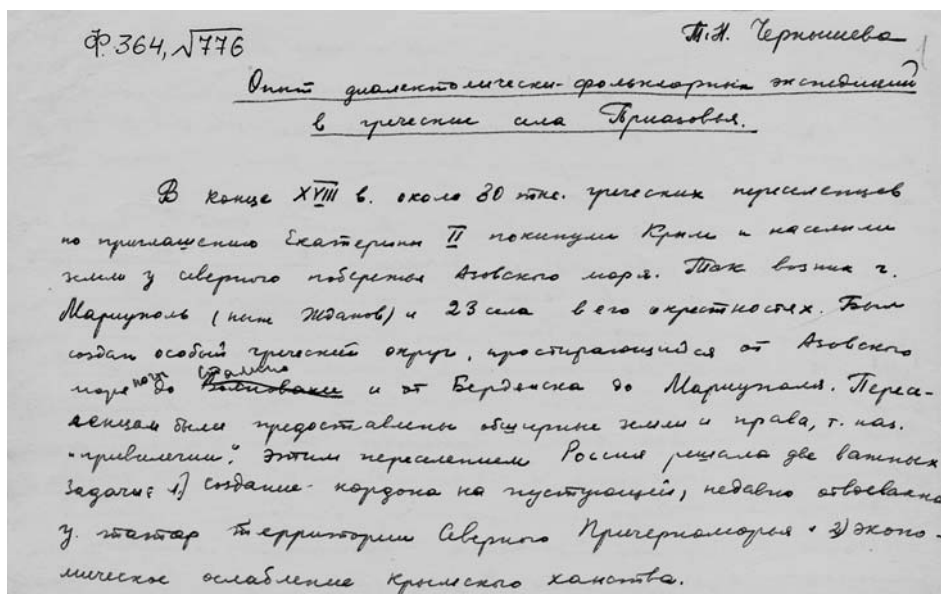 Ф. 364, √776
Т.Н. Чернышева
Опыт диалектолически-фольклорных экспедиций
в греческие села Приазовья.
В конце XVIII в. около 30 тыс. греческих переселенцев
по приглашению Екатерины II покинули Крым и населили
земли у северного побережья Азовского моря. Так возник г.
Мариуполь (ныне Жданов) и 23 села в его окрестностях. Был
создан особый греческий округ, простирающийся от Азовского
моря почти до Сталино и от Бердянска до Мариуполя. Пересе-
ленцам были предоставлены обширные земли и права, т. наз.
"привилегии". Этим переселением Россия решала две важных
задачи: 1) создание кордона на пустующей, недавно отвоеванно
у татар территории Северного Причерноморья • 2) эконо-
мическое ослабление крымского ханства.